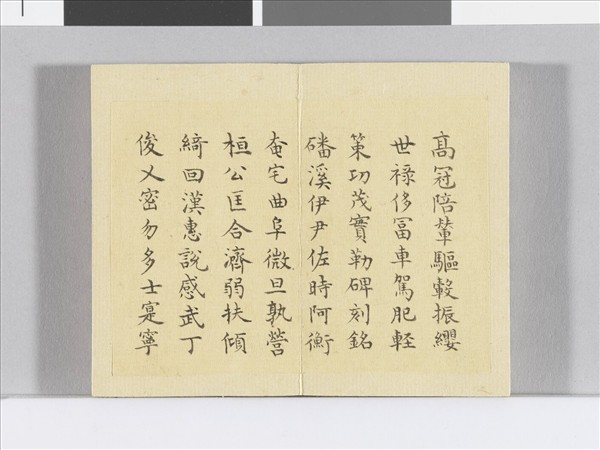 高冠陪輦驅轂振纓
世祿侈冨車駕肥軽
策功茂實勒碑刻銘
磻溪伊尹佐時阿衡
奄宅曲阜微旦孰營
桓公匡合濟弱扶傾
綺回漢惠說感武丁
俊乂密勿多士寔寧